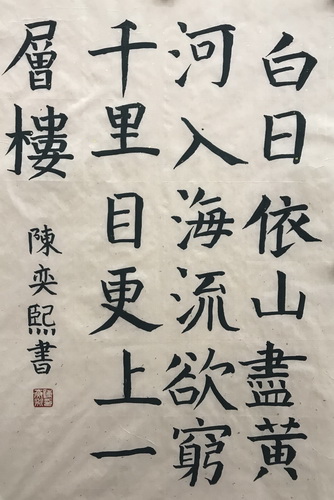 白日依山盡黄
河入海流欲窮
千里目更上一
層樓
陳奕熙書